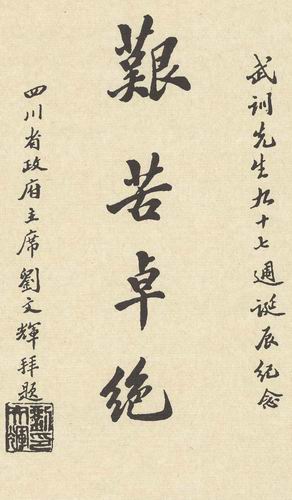 武训先生九十七週誕辰纪念
艱苦卓绝
四川省政府主席劉文輝拜题
劉文輝印